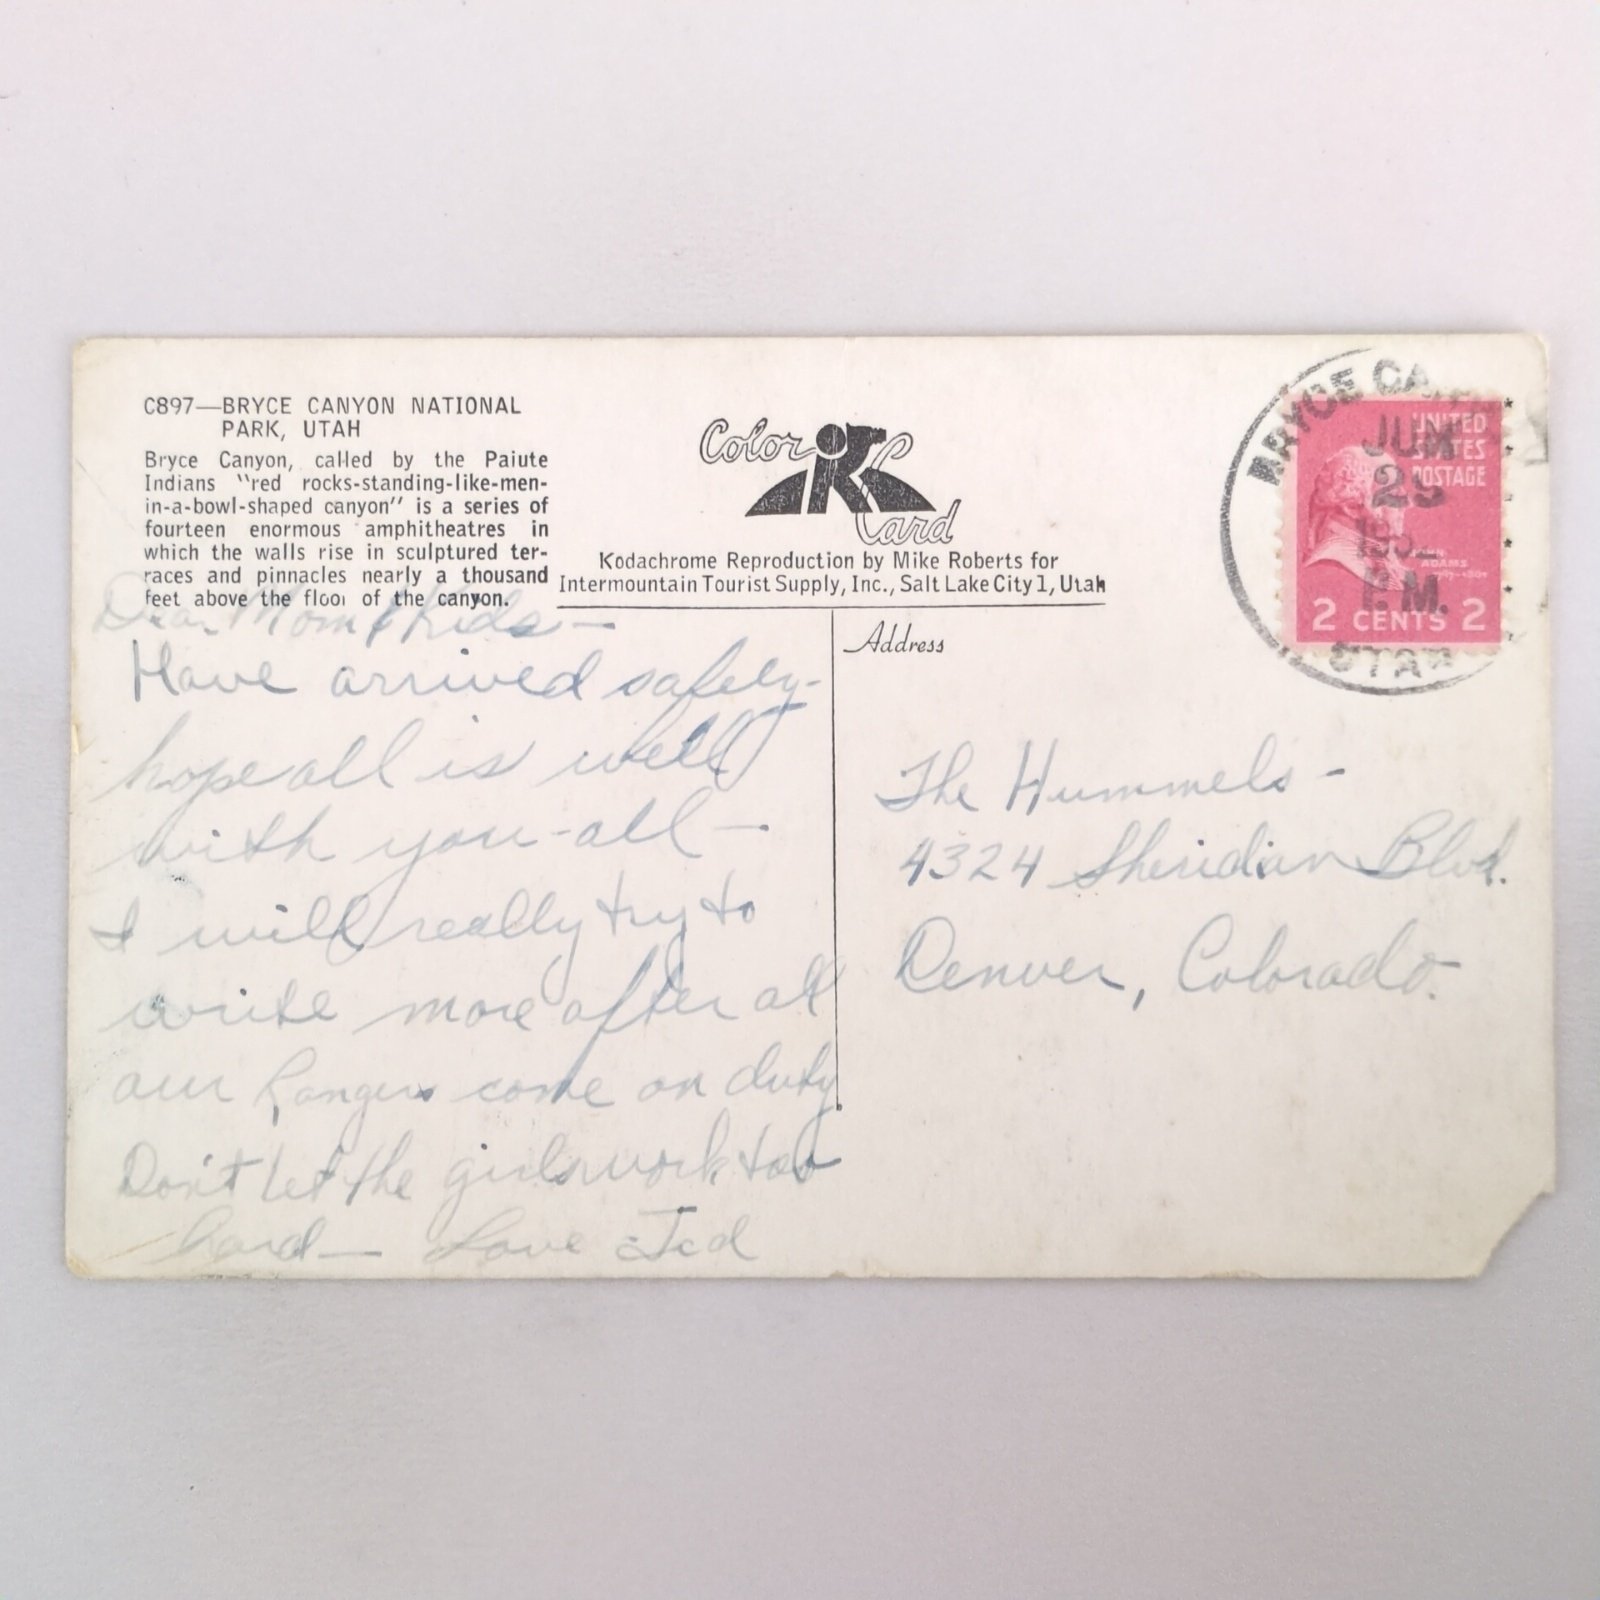 C897—BRYCE CANYON NATIONAL
PARK, UTAH
Bryce Canyon, called by the Paiute
Indians "red rocks-standing-like-men-
in-a-bowl-shaped canyon" is a series of
fourteen enormous amphitheatres in
which the walls rise in sculptured ter-
races and pinnacles nearly a thousand
feet above the floor of the canyon.
Color Card
Kodachrome Reproduction by Mike Roberts for
Intermountain Tourist Supply, Inc., Salt Lake City 1, Utah
BRYCE
JUN
29
P.M.
UTAH
UNITED
STATES
POSTAGE
ADAMS
2 CENTS 2
Dear Mom & Kids—
Have arrived safely-
hope all is well
with you-all—
I will really try to
write more after all
our Rangers come on duty
Don't let the girls work too
hard— Love Ted
Address
The Hummels-
4324 Sheridan Blvd.
Denver, Colorado.